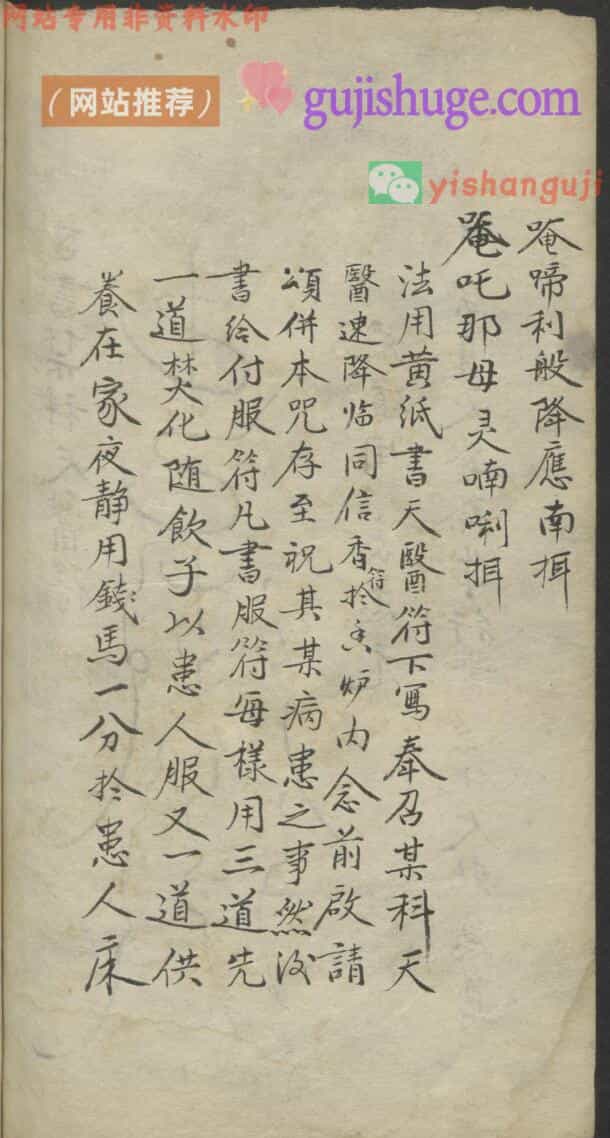 网站专用非资料水印
（网站推荐）
gujishuge.com
yishanguji
唵啼利般降應南揖
唵吒那毋灵喃唎揖
法用黄紙書天醫符下寫奉召某科天
醫速降临同信香符扵香炉内念前啟請
頌併本咒存至祝其某病患之事然後
書给付服符凡書服符每樣用三道先
一道焚化随飲子以患人服又一道供
養在家夜静用錢馬一分扵患人床